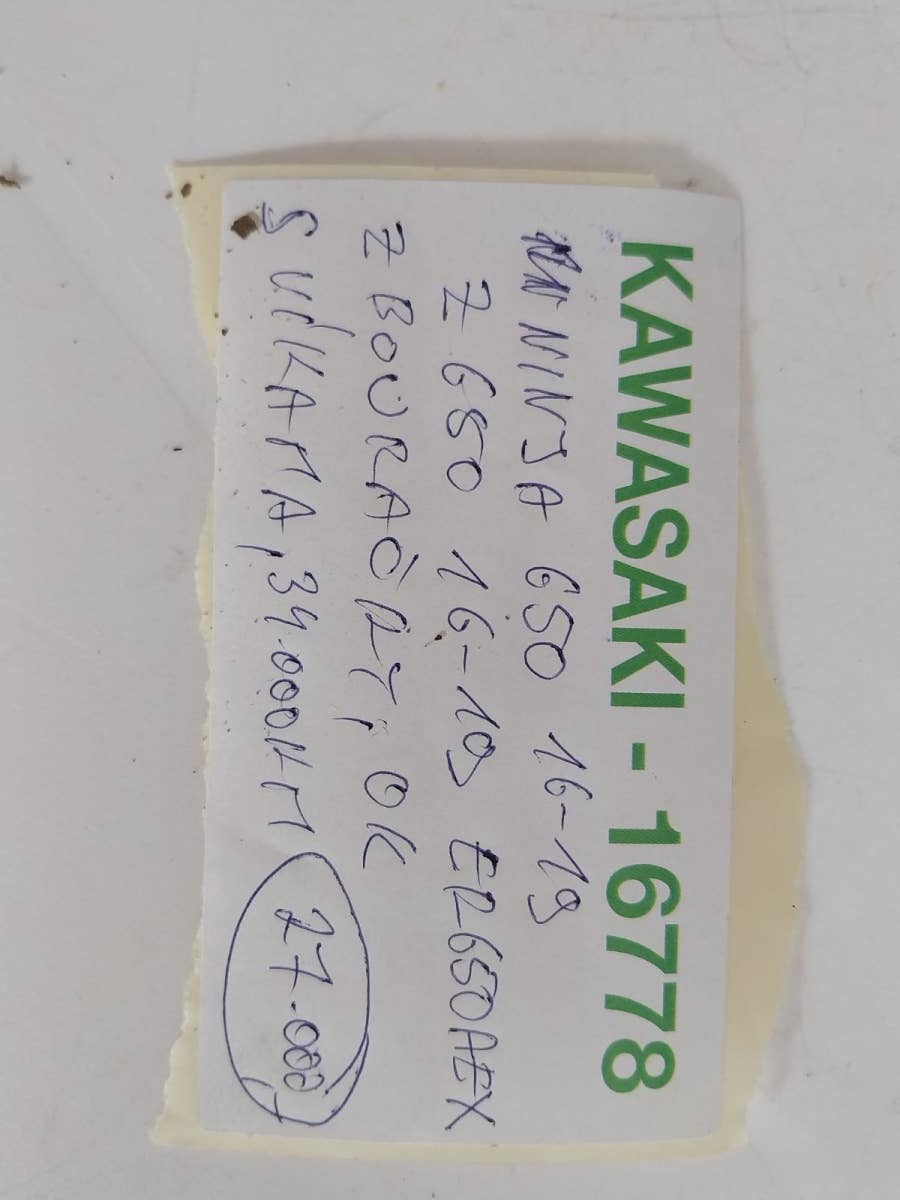 KAWASAKI - 16778
NINJA 650 16-19
Z 650 16-19 ER650AEX
Z BOURAČKY, OK
S VÍKAMA, 34.000KM 27.000